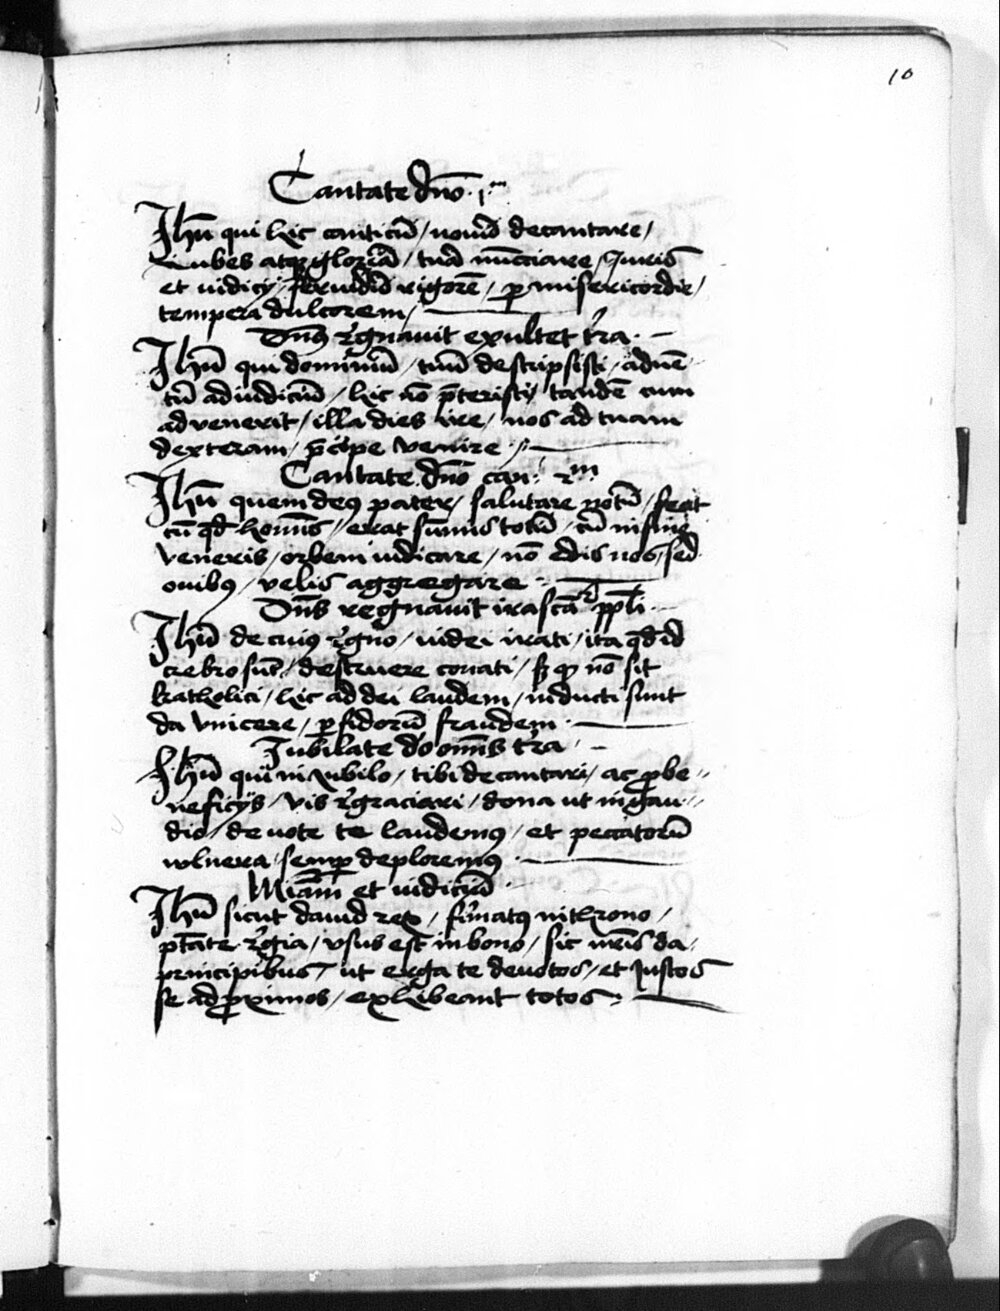 10
Cantate dno. 1m
Jhu qui hic canticu / novu decantare /
Iubes atq gloria / tua nucciare / Iuris
et iudicij / rigore / p misericordie /
tempera dulcorem /
Dns rgnauit exultet tra. —
Jhu qui dominiu / tuu descripsisti / aduē
tu ad iudiciu / hic no pteristi / tande cum
advenerit / illa dies ire / nos ad tuam
dexteram / pcipe venire
Cantate dno can. 2m
Jhu quem deus pater / salutare notu / fecit
cu qd homis / erat totu / cu in fine
veneris / orbem iudicare / no edis nos / sed
ouibus / velis aggregare
Dns regnauit irasca ppli
Jhu de cuius rgno / iudei irati / ita qd id
crebro sut / destruere conati / no sit
katholici / hic ad dei laudem / inducti sunt
da vincere / pfidoru fraudem
Jubilate do omis tra. —
Jhu qui in iubilo / tibi decantari / ac p be
neficijs / vis rgraciari / dona ut in gau
dio / devote te laudemus / et peccatoru
wlnera / semp deploremus
Miam et iudiciu
Jhu sicut david rex / firmatus in throno /
ptate rgia / vsus est in bono / sic nris da
principibus / ut erga te devotos / et Justos
se ad pximos / exhibeant totos